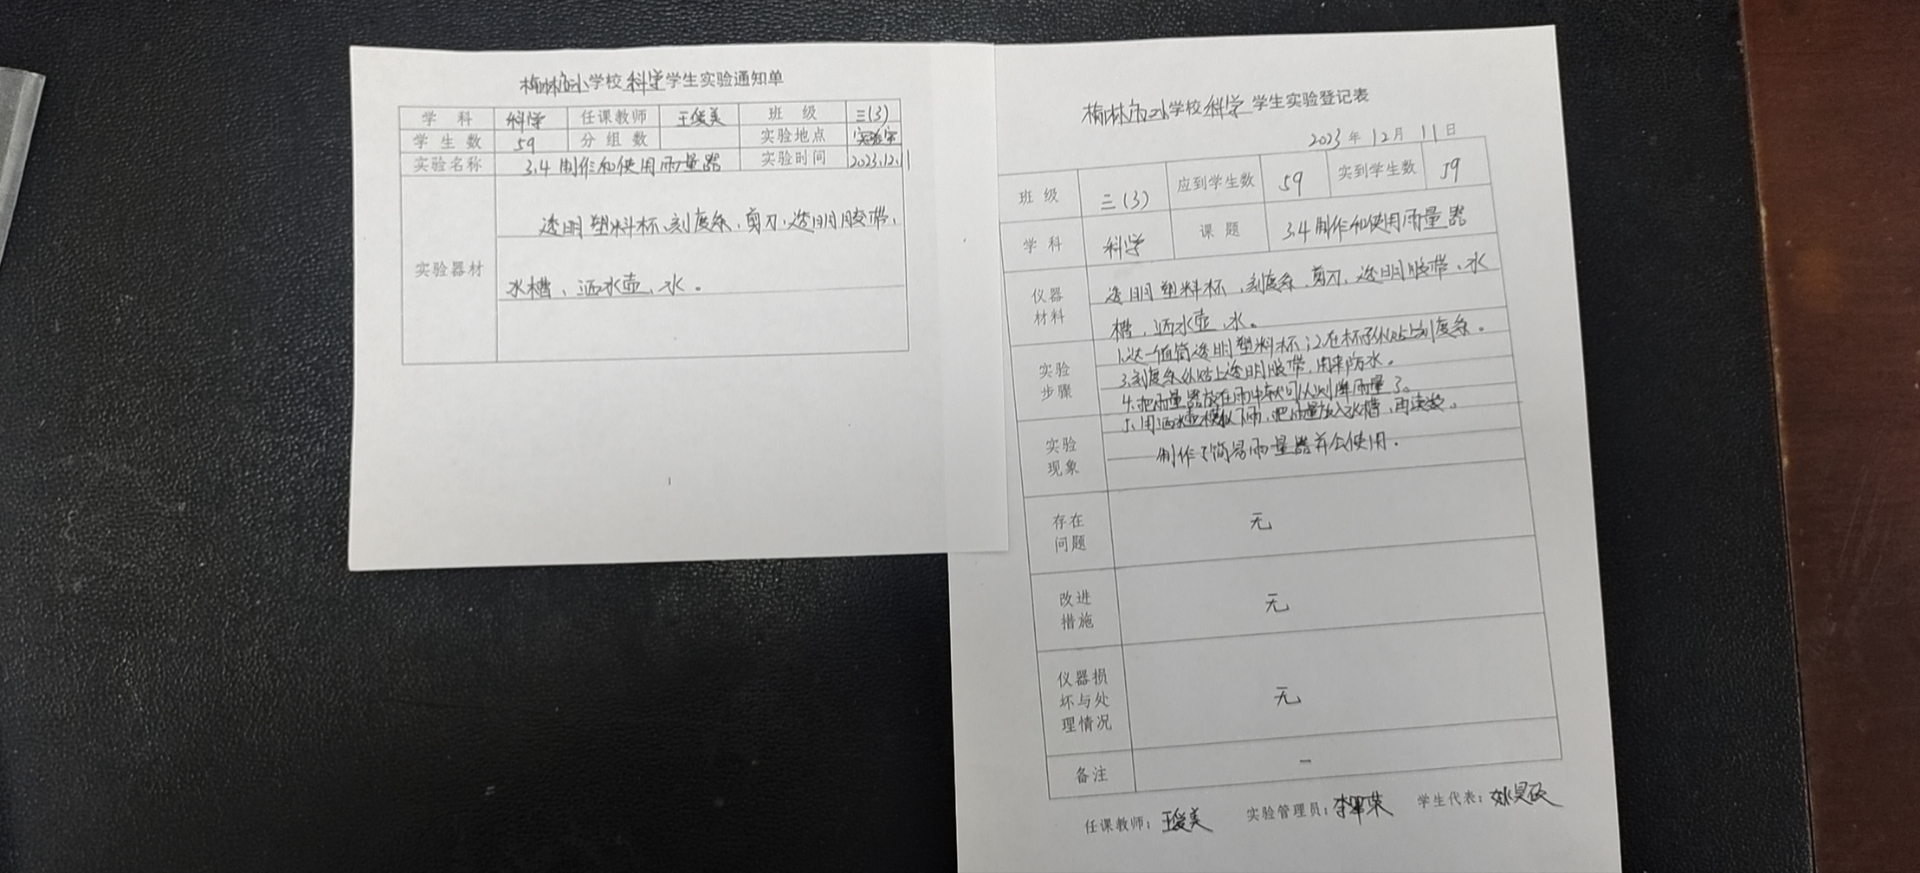 榆林市小学校科学学生实验通知单
学 科 科学 任课教师 王爱美 班 级 三(3)
学 生 数 59 分 组 数 实验地点 实验室
实验名称 3.4 制作和使用雨量器 实验时间 2023.12.11
实验器材
透明塑料杯、刻度条、剪刀、透明胶带、
水槽、洒水壶、水。
1
榆林市小学校科学学生实验登记表
2023年12月11日
班 级 三(3) 应到学生数 59 实到学生数 59
学 科 科学 课 题 3.4 制作和使用雨量器
仪器材料
透明塑料杯、刻度条、剪刀、透明胶带、水
槽、洒水壶、水。
实验步骤
1.选一直筒透明塑料杯;2.在杯子外贴上刻度条。
3.刻度条外贴上透明胶带,用来防水。
4.把雨量器放在雨中就可以测降雨量了。
5.用洒水壶模拟下雨,把雨量放入水槽,再读数。
实验现象
制作了简易雨量器并会使用.
存在问题 无
改进措施 无
仪器损坏与处理情况 无
备注 一
任课教师:王爱美 实验管理员: 学生代表: